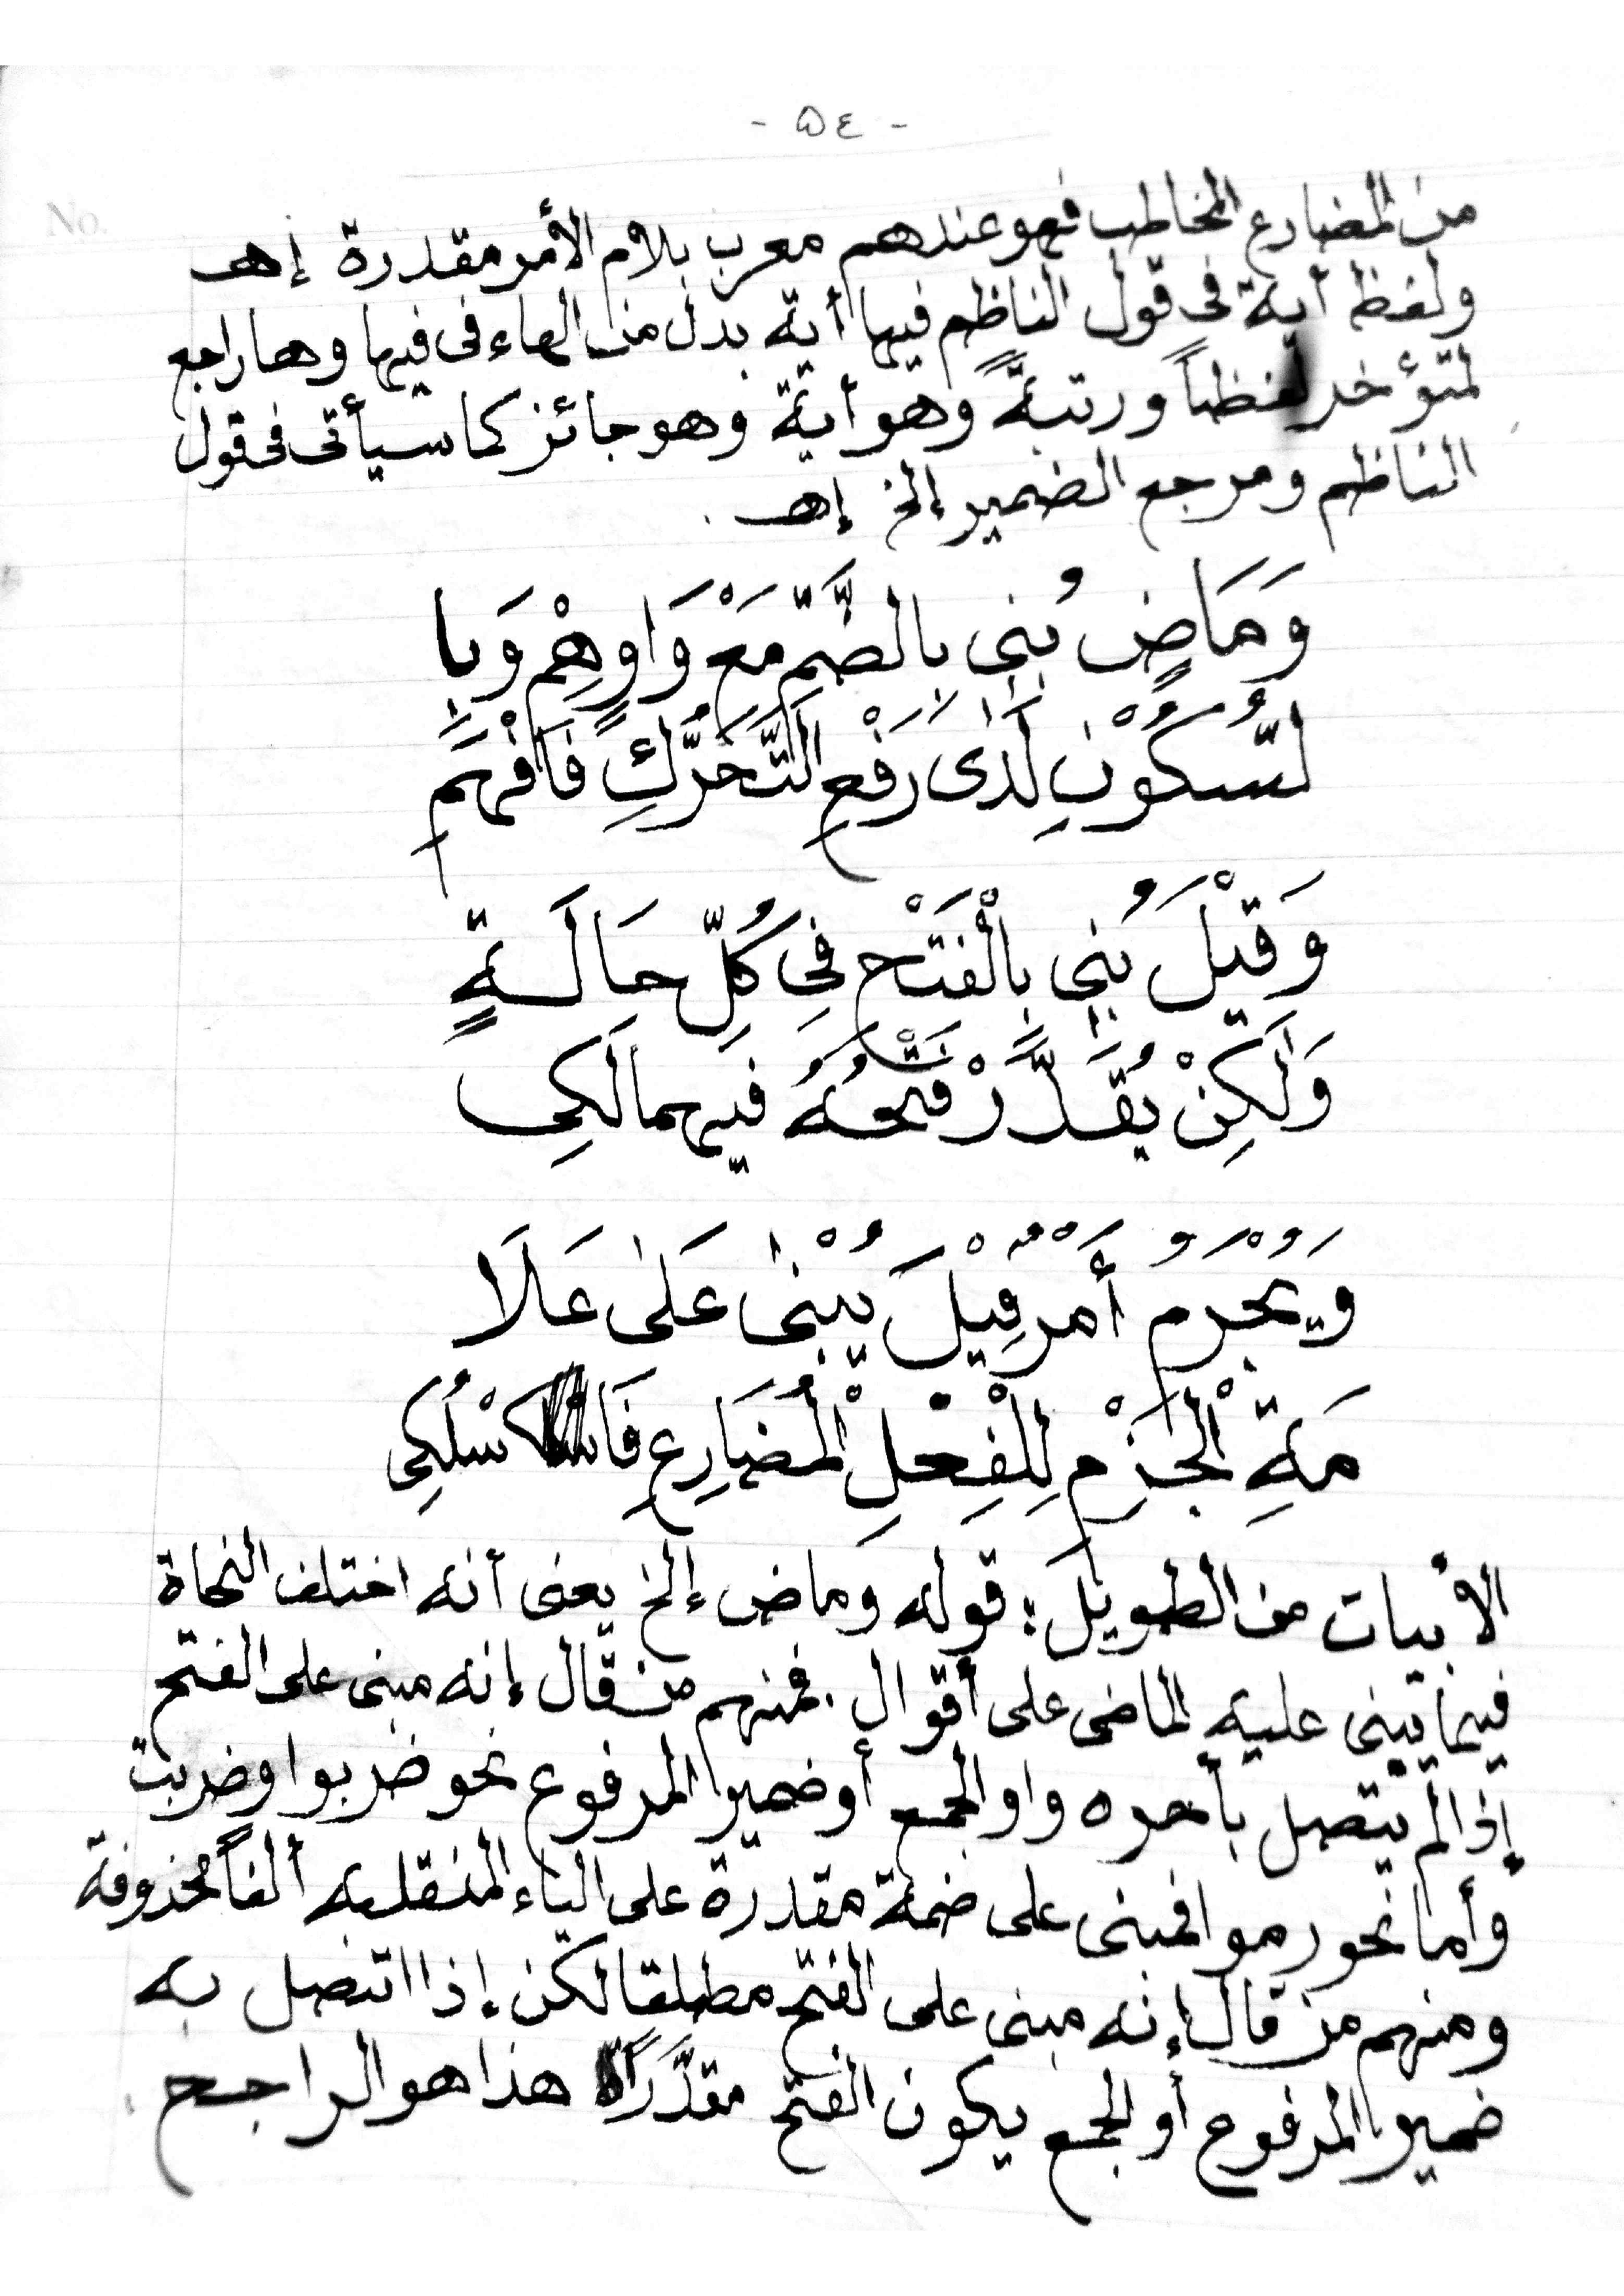 - ٥٤ -
No.
من المضارع المخاطب فهو عندهم معرب بلام الأمر مقدرة إهـ
ولفظ أية فى قول الناظم فيها أية بدل من الهاء فى فيها وها راجع
لمتؤخر لفظاً ورتبةً وهو أية وهو جائز كما سيأتى فى قول
الناظم ومرجع الضمير إلخ إهـ .
وَمَاضٍ بُنِي بِالضَّمِّ مَعْ وَاوِهِمْ وَبِا
لسُّكُوْنِ لَذٰى رَفْعِ التَّحَرُّكِ فَافْهَمِ
وَقِيْلَ بُنِي بِالْفَتْحِ فِي كُلِّ حَالَةٍ
وَلٰكِنْ يُقَدَّرْ فَتْحُهُ فيهما لَكِى
وَيُجْرَمُ أَمْرٌ قِيْلَ يُبْنٰى عَلٰى عَلَا
مَةِ الْجَزْمِ لِلْفِعْلِ الْمُضَارِعِ فَاسْلُكِى
الأبيات من الطويل: قوله وماض إلخ يعنى أنه اختلف النحاة
فيما يبنى عليه الماضى على أقوال . فمنهم من قال إنه مبنى على الفتح
إذا لم يتصل بأخره واو الجمع أو ضمير المرفوع نحو ضربوا وضربت
وأما نحو رموا فمبنى على ضمة مقدرة على الياء المنقلبه ألفاً محذوفة
ومنهم من قال إنه مبنى على الفتح مطلقا لكن إذا اتصل به
ضمير المرفوع أو الجمع يكون الفتح مقدَّراً هذا هو الراجح .